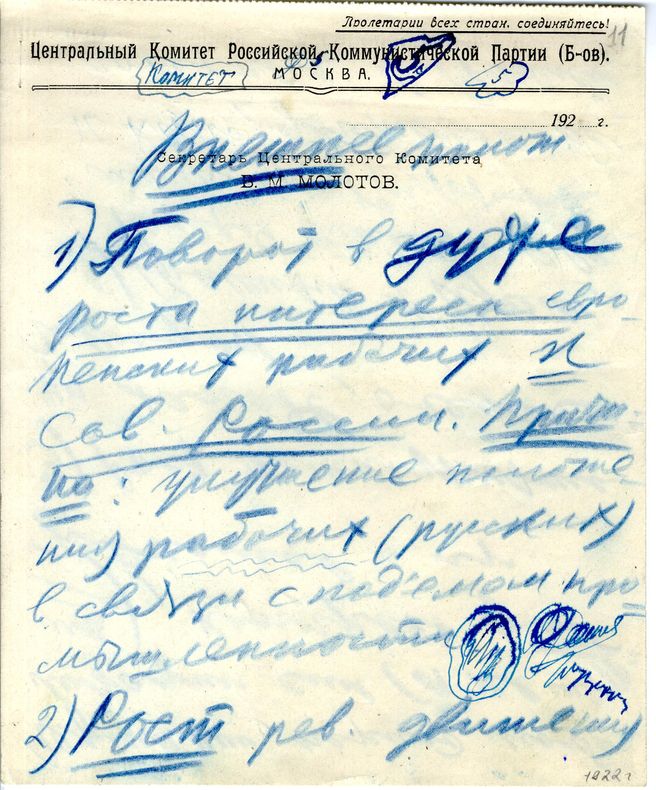 Пролетарии всех стран, соединяйтесь!
11
Центральный Комитет Российской Коммунистической Партии (Б-ов).
Комитет
МОСКВА.
5
192 г.
Внешнее полож
Секретарь Центрального Комитета
В. М. МОЛОТОВ.
1) Поворот в духе
роста интереса евро-
пейских рабочих к
Сов. России. Причи-
на: улучшение положе-
ния рабочих (русских)
в связи с под'емом про-
мышленности
2) Рост рев. движения
1922 г